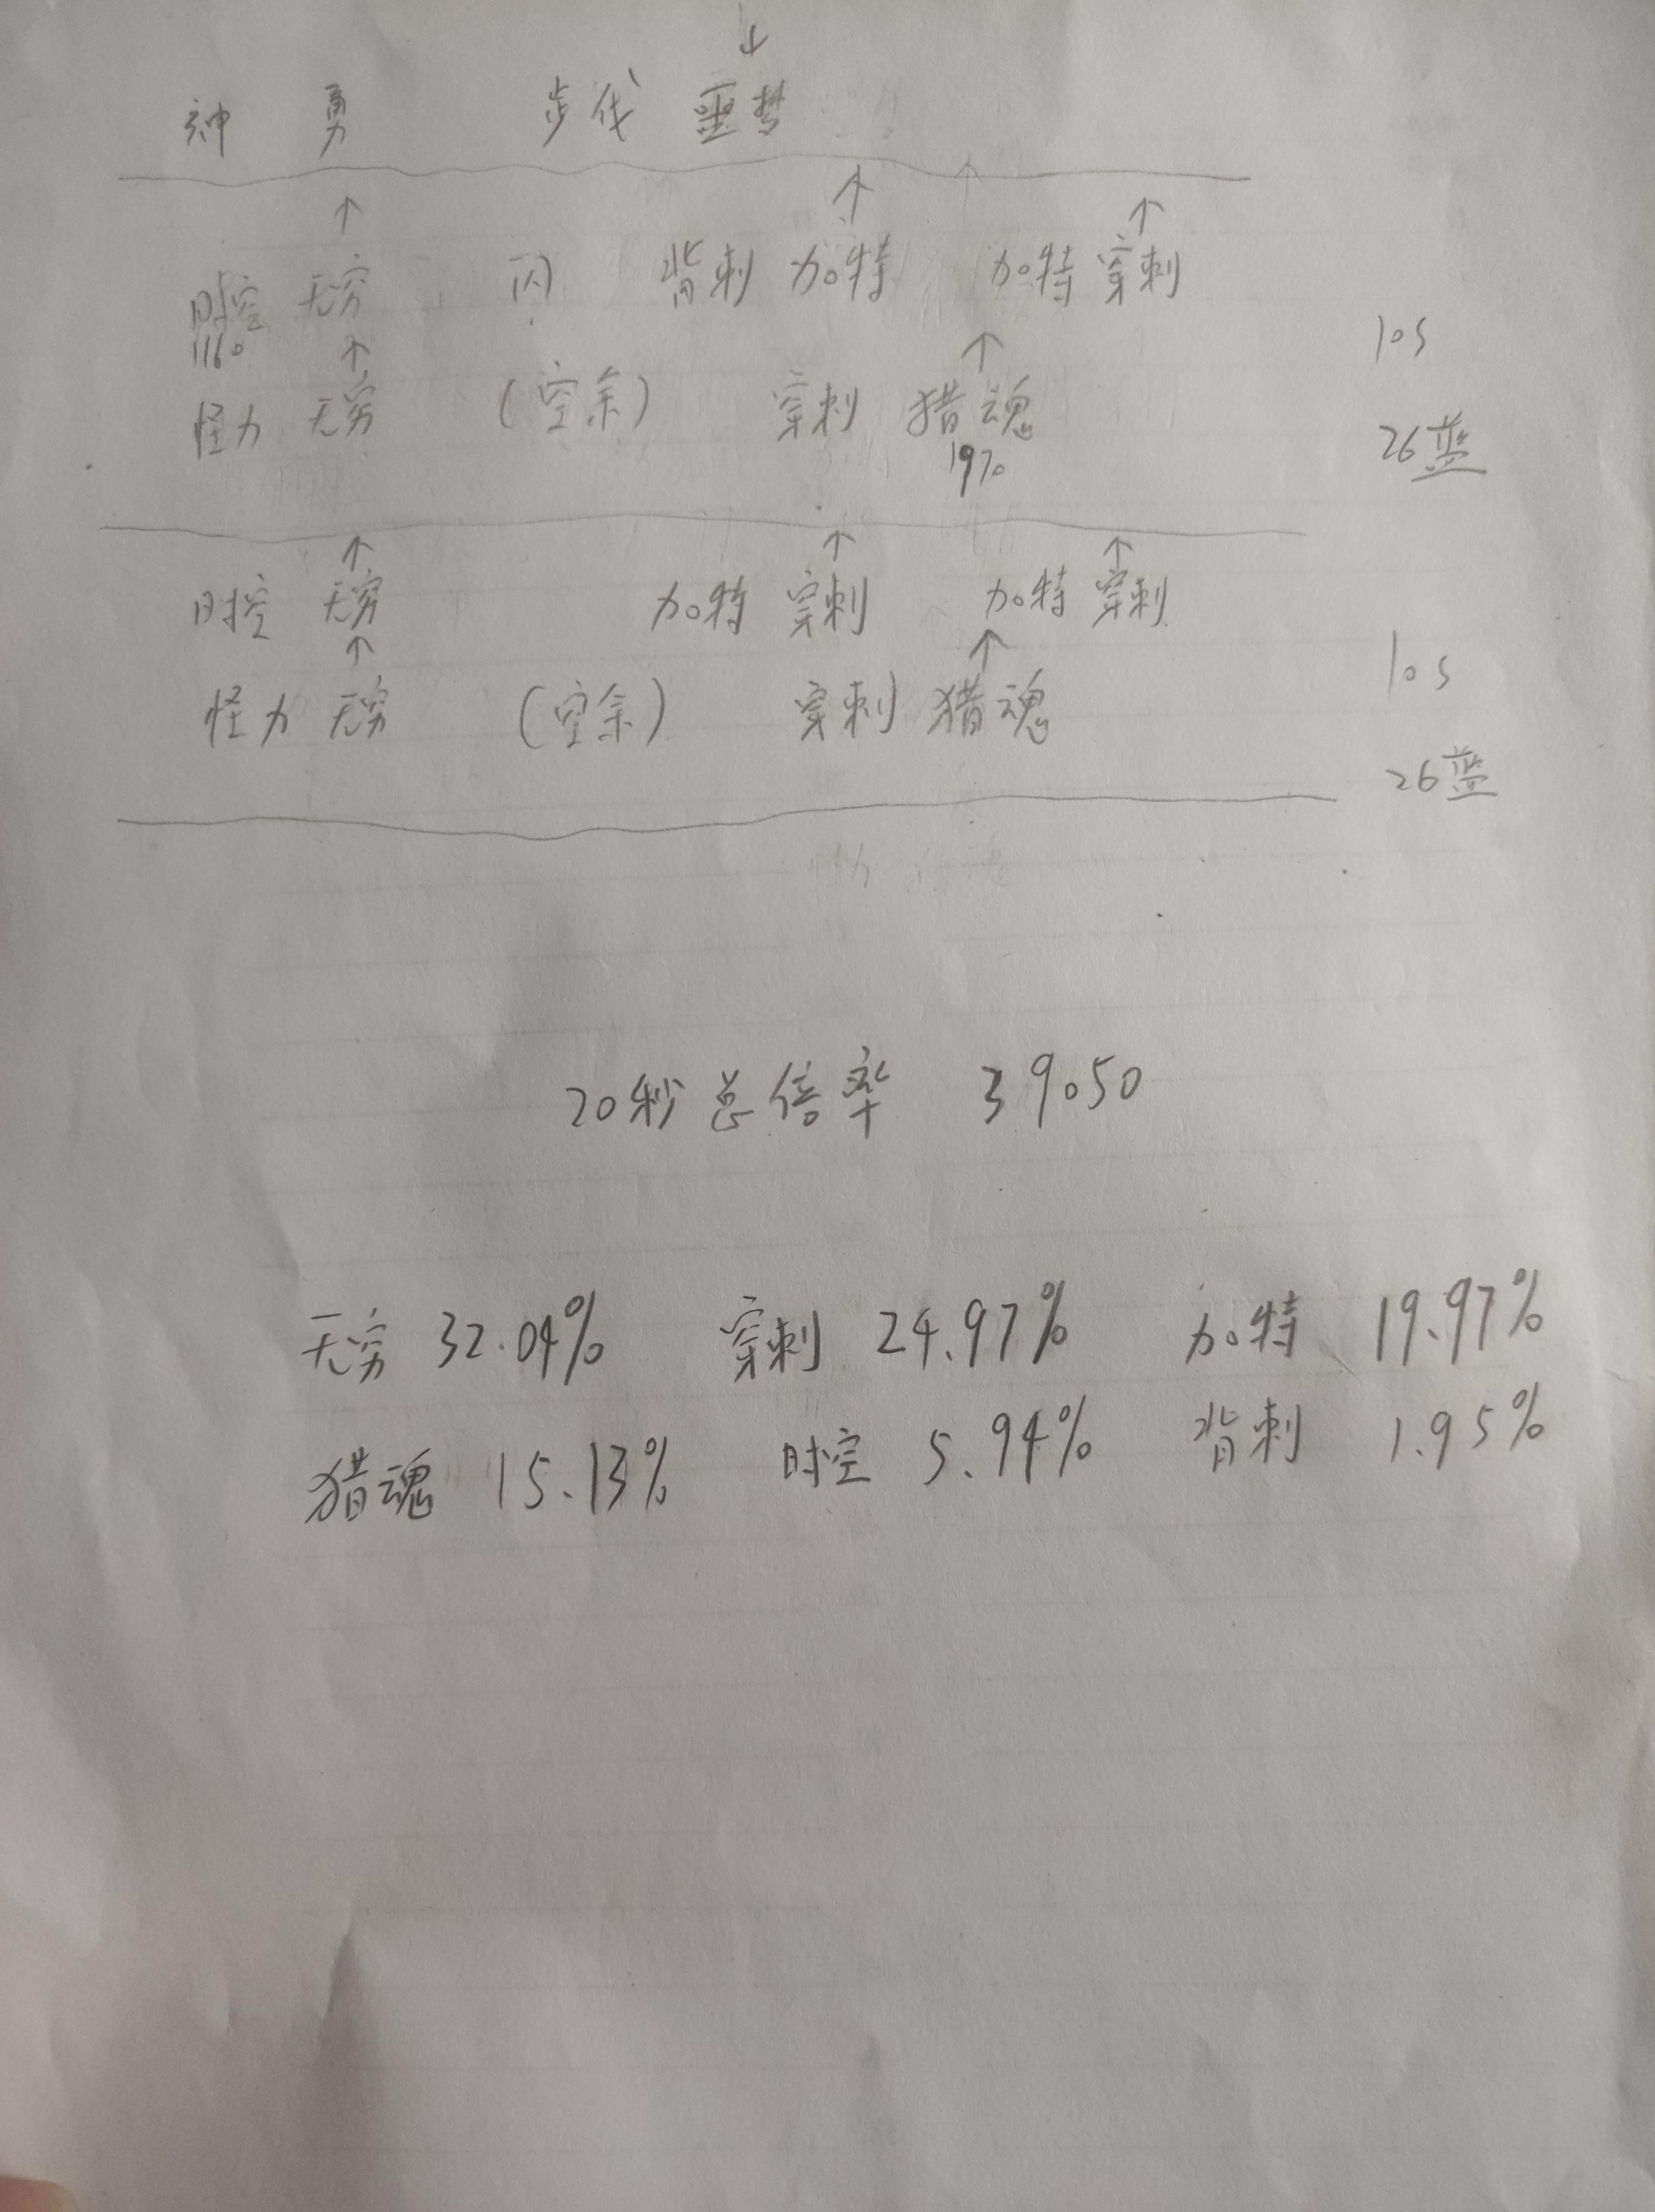 ↓
神 勇 步伐 噩梦
↑ ↑ ↑ ↑
时空 无穷 闪 背刺 加特 加特 穿刺
1160 ↑ ↑ 10s
怪力 无穷 (空余) 穿刺 猎魂 26蓝
1970
↑ ↑ ↑
时空 无穷 加特 穿刺 加特 穿刺
↑ ↑ 10s
怪力 无穷 (空余) 穿刺 猎魂
26蓝
20秒总倍率 39050
无穷 32.04% 穿刺 24.97% 加特 19.97%
猎魂 15.13% 时空 5.94% 背刺 1.95%